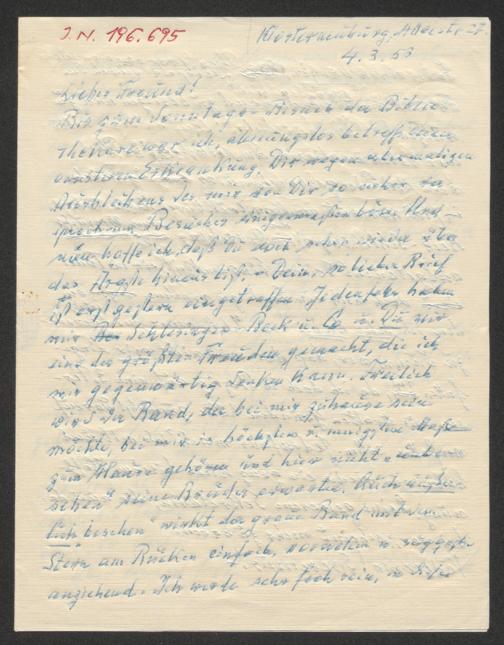 J. N. 196.695
Klosterneuburg, Albrechtstr. 
4. 3. 53
Lieber Freund!
Bis zum Sonntags- der Biblio
theksre war ich ahnungslos betreffs einer
ernsteren Erkrankung. Dir wegen abermaligen
Ausbleibens des mir von Dir so sicher ver
sprochenen Besuches einigermaßen böse. Und
nun hoffe ich, daß Du wohl schon wieder über
das Ärgste hinaus bist. Dein so lieber Brief
ist erst gestern eingetroffen. Jedenfalls haben
mir Schlesinger Beck u. Co u. Du mir
eine der größten Freuden gemacht, die ich
mir gegenwärtig denken kann. Freilich
wird der Band, der bei mir zuhause sein
möchte, bei mir in höchstem u. innigstem Maße
zum Hause gehören und hier nicht
seine Brüder erwarten. Auch äußer
lich besehen wirkt der graue Band mit dem
Stern am Rücken einfach, vornehm u.
anziehend. Ich werde sehr froh sein,